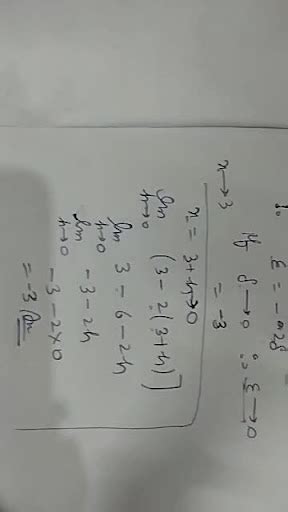 ε = -m2δ
x→3 If δ→0 ∴ ε→0
= -3
x = 3+h→0
lim h→0 (3-2(3+h)]
lim h→0 3-6-2h
lim h→0 -3-2h
-3-2×0
= -3 Ans